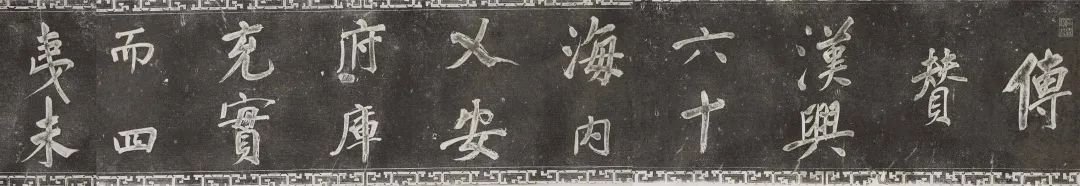 傳
賛
漢興
六十
海内
乂安
府庫
充實
而四
夷未